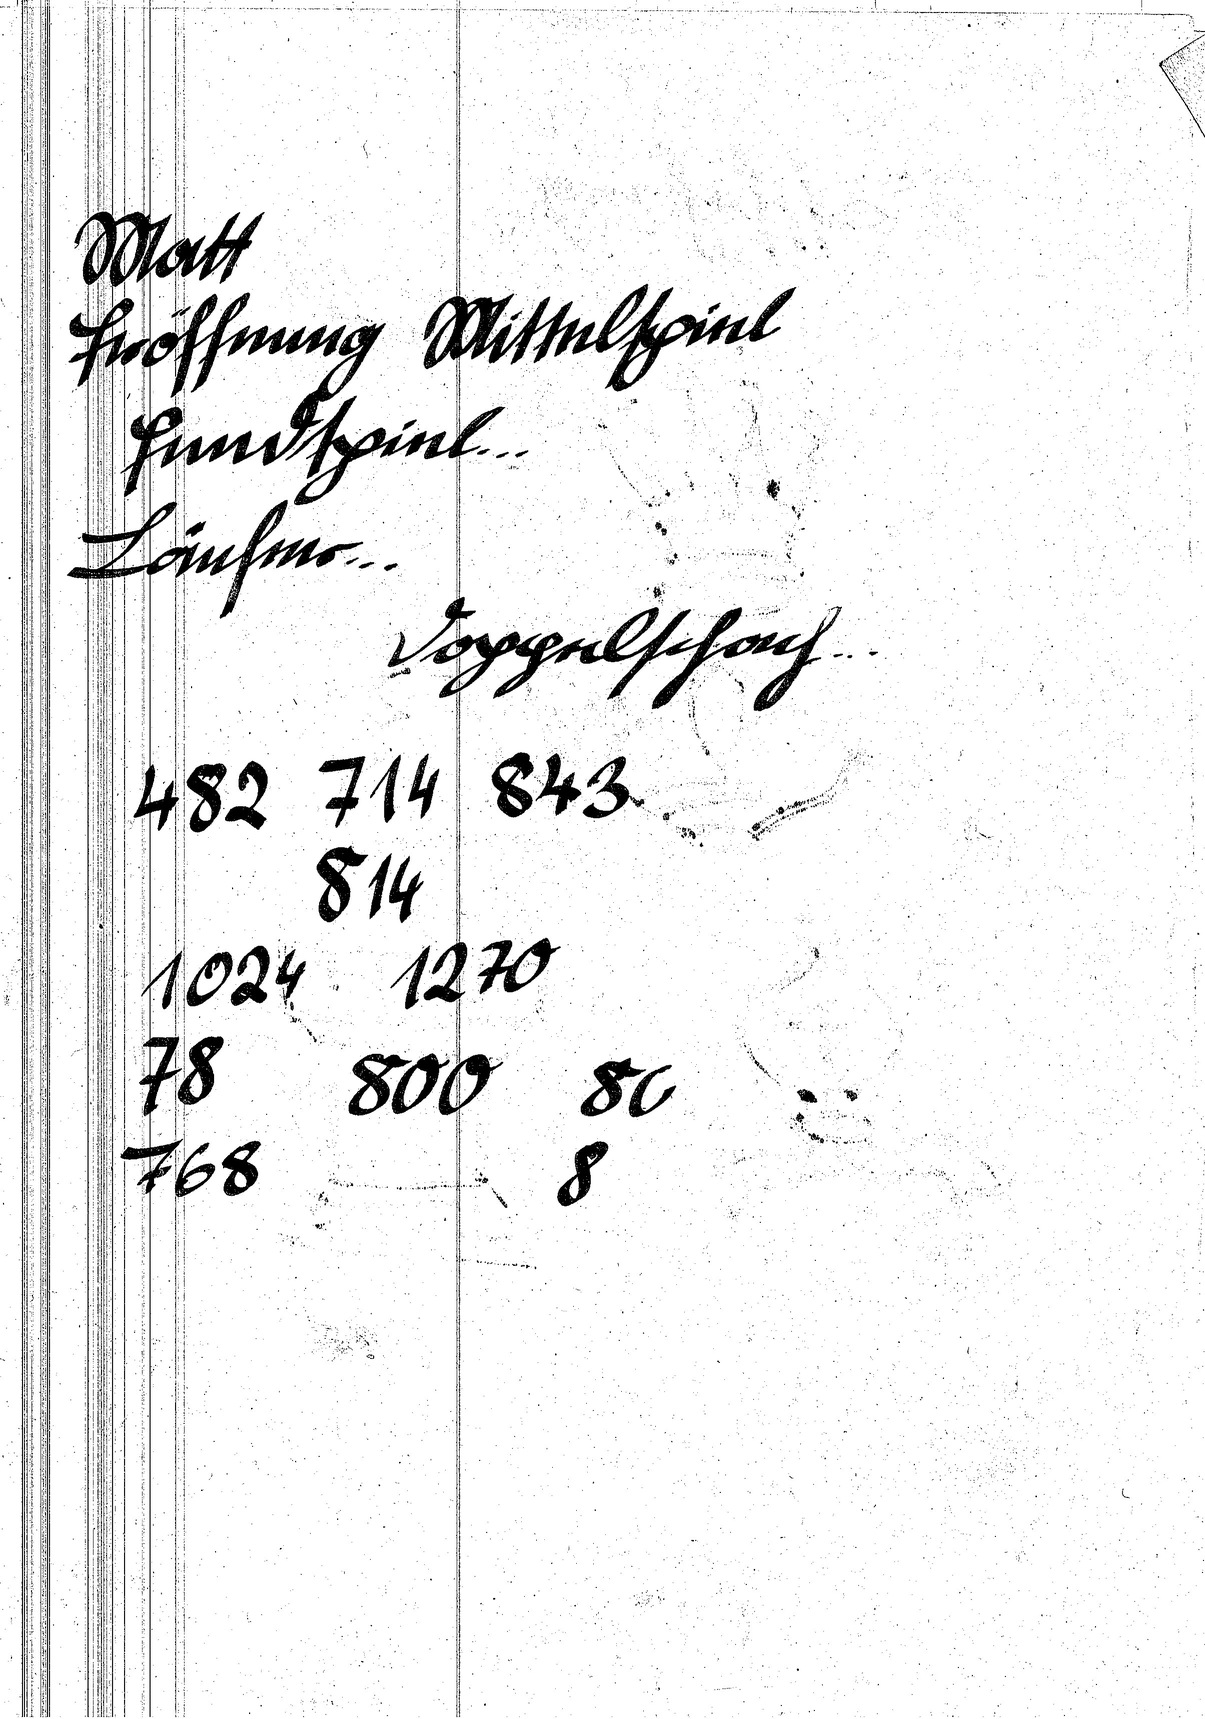 Matt
Eröffnung Mittelspiel
Endspiel...
Läufer...
Doppelschach...
482 714 843
814
1024 1270
78 800 80
768 8